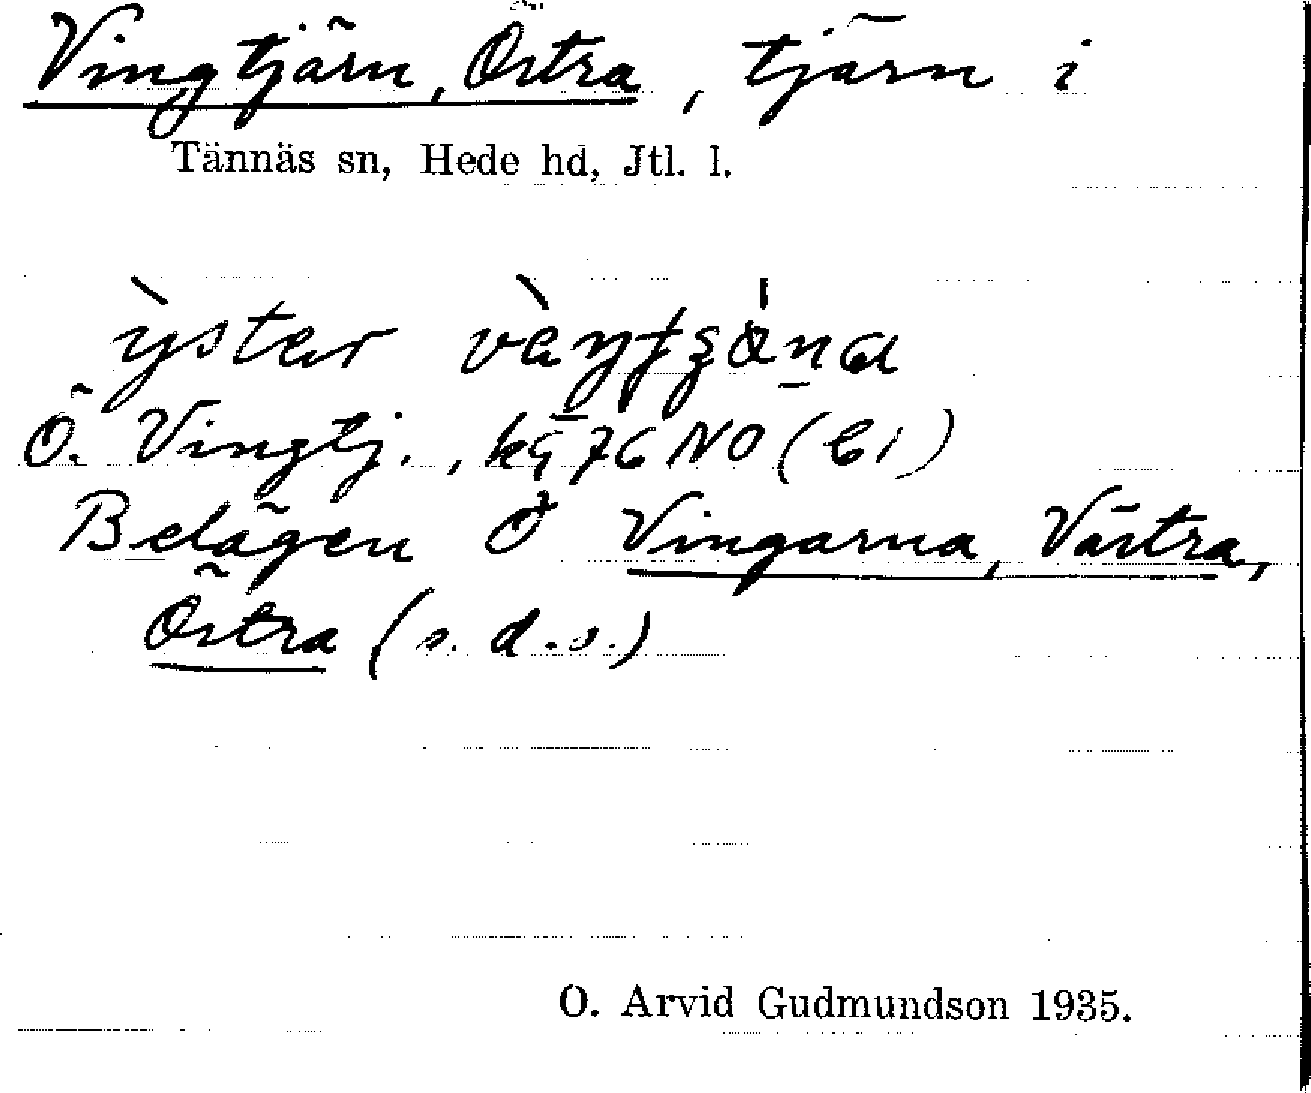 Vingtjärn, Östra, tjärn i
Tännäs sn, Hede hd, Jtl. l.
ỳster
Ö. Vingtj., kg 76 NO (b1)
Belägen Ö Vingarna, Västra,
Östra (s. d. o.)
O. Arvid Gudmundson 1935.